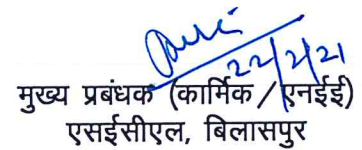 22/2/21
मुख्य प्रबंधक (कार्मिक/एनईई)
एसईसीएल, बिलासपुर